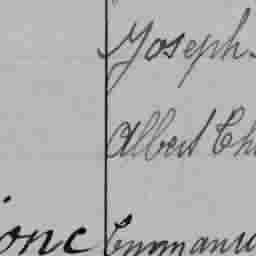 Joseph
Albert Ch
onc Emmanu